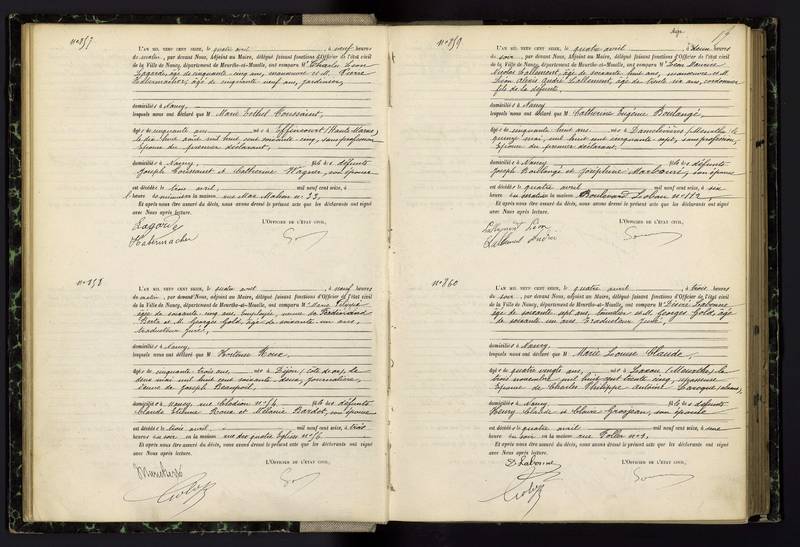 n° 857
L'AN MIL NEUF CENT SEIZE, le quatre avril, à neuf heures
du matin, par devant Nous, Adjoint au Maire, délégué faisant fonctions d'Officier de l'état civil
de la Ville de Nancy, département de Meurthe-et-Moselle, ont comparu M Charles Léon
Lagarde, âgé de cinquante cinq ans, manœuvre et M. Pierre
Habermacher, âgé de cinquante neuf ans, jardinier,
domiciliés à Nancy,
lesquels nous ont déclaré que M Marie Esthel Toussaint,
âgée de cinquante ans, née à Effincourt (Haute Marne)
le dix août mil huit cent soixante cinq, sans profession
Epouse du premier déclarant,
domiciliée à Nancy, fille des défunts
Joseph Toussaint et Catherine Wagner, son épouse
est décédée le trois avril mil neuf cent seize, à
heures en la maison rue Mac Mahon n° 33,
Et après nous être assuré du décès, nous avons dressé le présent acte que les déclarants ont signé
avec Nous après lecture.
L'OFFICIER DE L'ÉTAT CIVIL,
Lagarde
Habermacher
n° 858
L'AN MIL NEUF CENT SEIZE, le quatre avril, à neuf heures
du matin, par devant Nous, Adjoint au Maire, délégué faisant fonctions d'Officier de l'état civil
de la Ville de Nancy, département de Meurthe-et-Moselle, ont comparu M
âgée de soixante cinq ans, Employée, veuve de Ferdinand
et M. Georges Gold, âgé de soixante un ans,
traducteur juré,
domiciliés à Nancy,
lesquels nous ont déclaré que M Fortunée Roux,
âgée de cinquante trois ans, née à Dijon (Côte d'or) le
deux mai mil huit cent soixante deux, journalière,
veuve de Joseph
domiciliée à Nancy rue Clodion n° 14, fille des défunts
Claude Etienne Roux et Mélanie Bardot, son épouse
est décédée le trois avril mil neuf cent seize, à trois
heures du soir en la maison rue des quatre Eglises n° 16,
Et après nous être assuré du décès, nous avons dressé le présent acte que les déclarants ont signé
avec Nous après lecture.
L'OFFICIER DE L'ÉTAT CIVIL,
n° 859
L'AN MIL NEUF CENT SEIZE, le quatre avril, à deux heures
du soir, par devant Nous, Adjoint au Maire, délégué faisant fonctions d'Officier de l'état civil
de la Ville de Nancy, département de Meurthe-et-Moselle, ont comparu M Léon
Nicolas Lallement, âgé de soixante huit ans, manœuvre et M.
Léon Alexis André Lallement, âgé de trente six ans, cordonnier
fils de la défunte,
domiciliés à Nancy
lesquels nous ont déclaré que M Catherine Eugénie Boulangé,
âgée de cinquante huit ans, née à Damelevières (Meurthe) le
quinze mai mil huit cent cinquante sept, sans profession,
Epouse du premier déclarant,
domiciliée à Nancy, fille des défunts
Joseph Boulangé et Joséphine son épouse
est décédée le quatre avril mil neuf cent seize, à six
heures du matin en la maison Boulevard Lobau n° 112,
Et après nous être assuré du décès, nous avons dressé le présent acte que les déclarants ont signé
avec Nous après lecture.
L'OFFICIER DE L'ÉTAT CIVIL,
Lallement Léon
Lallement André
n° 860
L'AN MIL NEUF CENT SEIZE, le quatre avril, à trois heures
du soir, par devant Nous, Adjoint au Maire, délégué faisant fonctions d'Officier de l'état civil
de la Ville de Nancy, département de Meurthe-et-Moselle, ont comparu M Désiré Labonne,
âgé de soixante sept ans, et M. Georges Gold, âgé
de soixante un ans traducteur juré,
domiciliés à Nancy,
lesquels nous ont déclaré que M Marie Louise Claude,
âgée de quatre vingts ans, née à Laxou (Meurthe) le
trois novembre mil huit cent trente cinq,
Epouse de Charles Philippe Antoine
domiciliée à Nancy, fille des défunts
Henry Claude et Claire Grosjean, son épouse
est décédée le quatre avril mil neuf cent seize, à une
heure du soir en la maison rue n° 1,
Et après nous être assuré du décès, nous avons dressé le présent acte que les déclarants ont signé
avec Nous après lecture.
L'OFFICIER DE L'ÉTAT CIVIL,
D Labonne